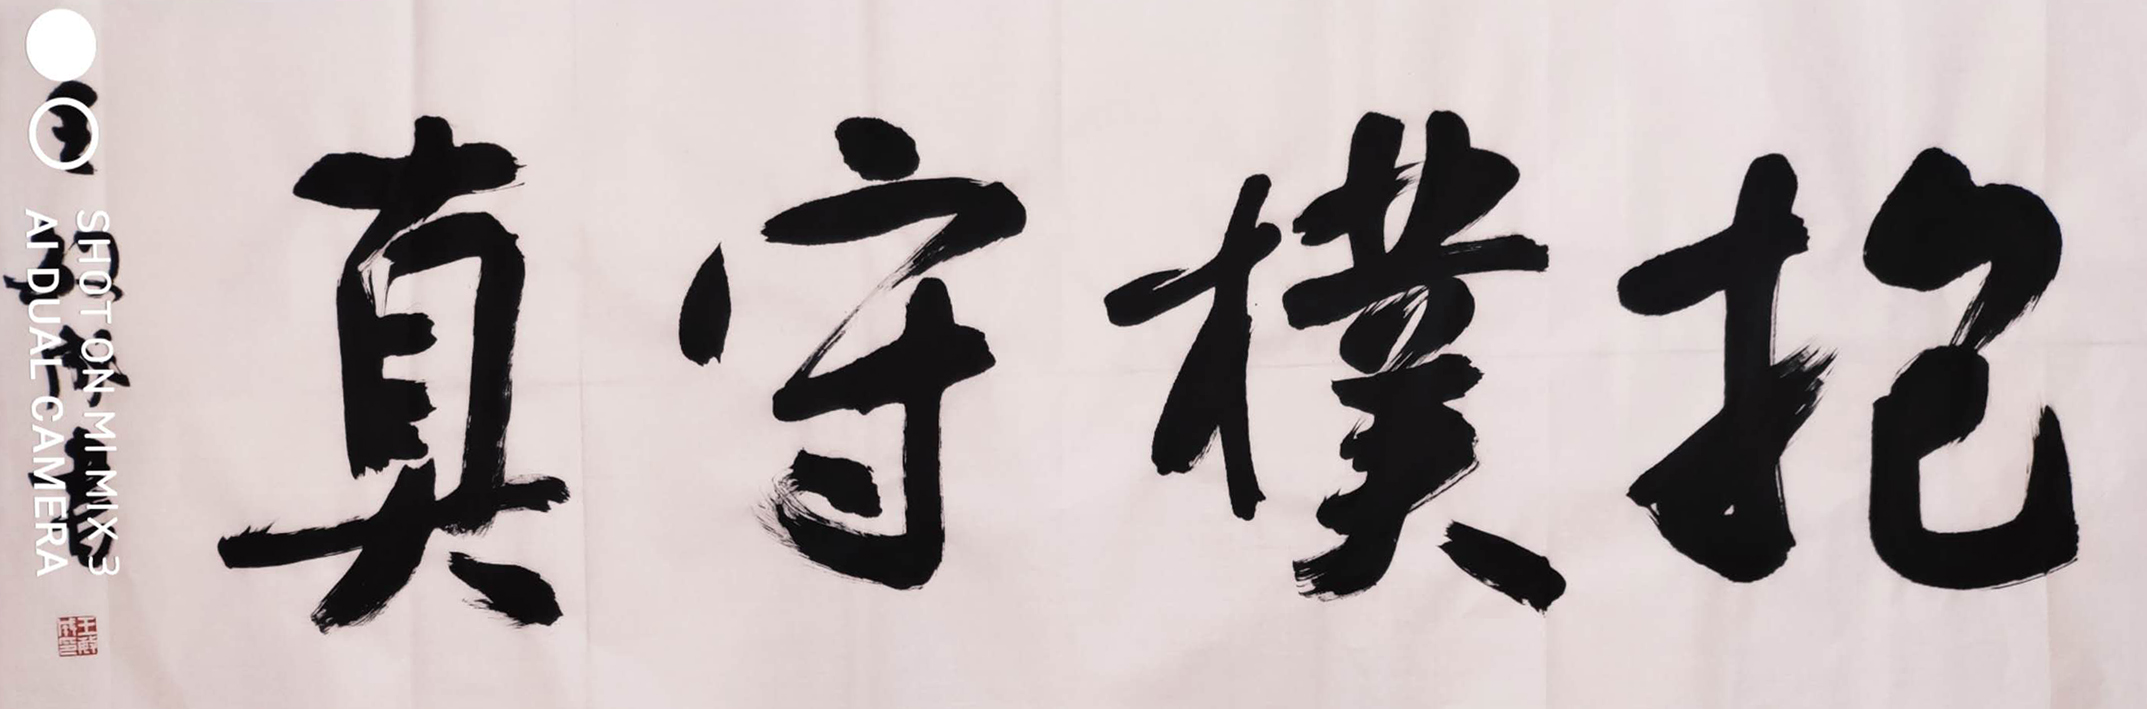 抱樸守真
SHOT ON MI MIX 3
AI DUAL CAMERA